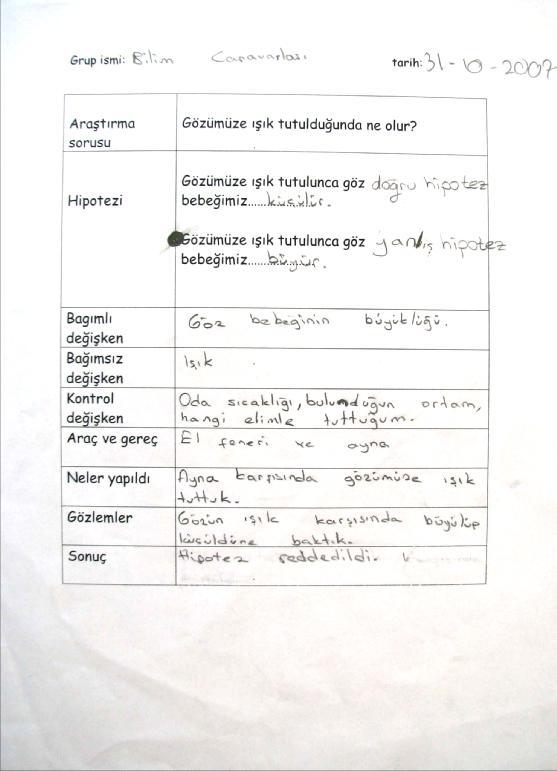 Grup ismi: Bilim Canavarları tarih: 31-10-2007
Araştırma sorusu
Gözümüze ışık tutulduğunda ne olur?
Hipotezi
Gözümüze ışık tutulunca göz doğru hipotez
bebeğimiz......küçülür.
Gözümüze ışık tutulunca göz yanlış hipotez
bebeğimiz......büyür.
Bagımlı
değişken
Göz bebeğinin büyüklüğü.
Bağımsız
değişken
Işık
Kontrol
değişken
Oda sıcaklığı, bulunduğun ortam,
hangi elimle tuttuğum.
Araç ve gereç
El feneri ve ayna
Neler yapıldı
Ayna karşısında gözümüze ışık
tuttuk.
Gözlemler
Gözün ışık karşısında büyülüp
küçüldüne baktık.
Sonuç
Hipotez reddedildi.